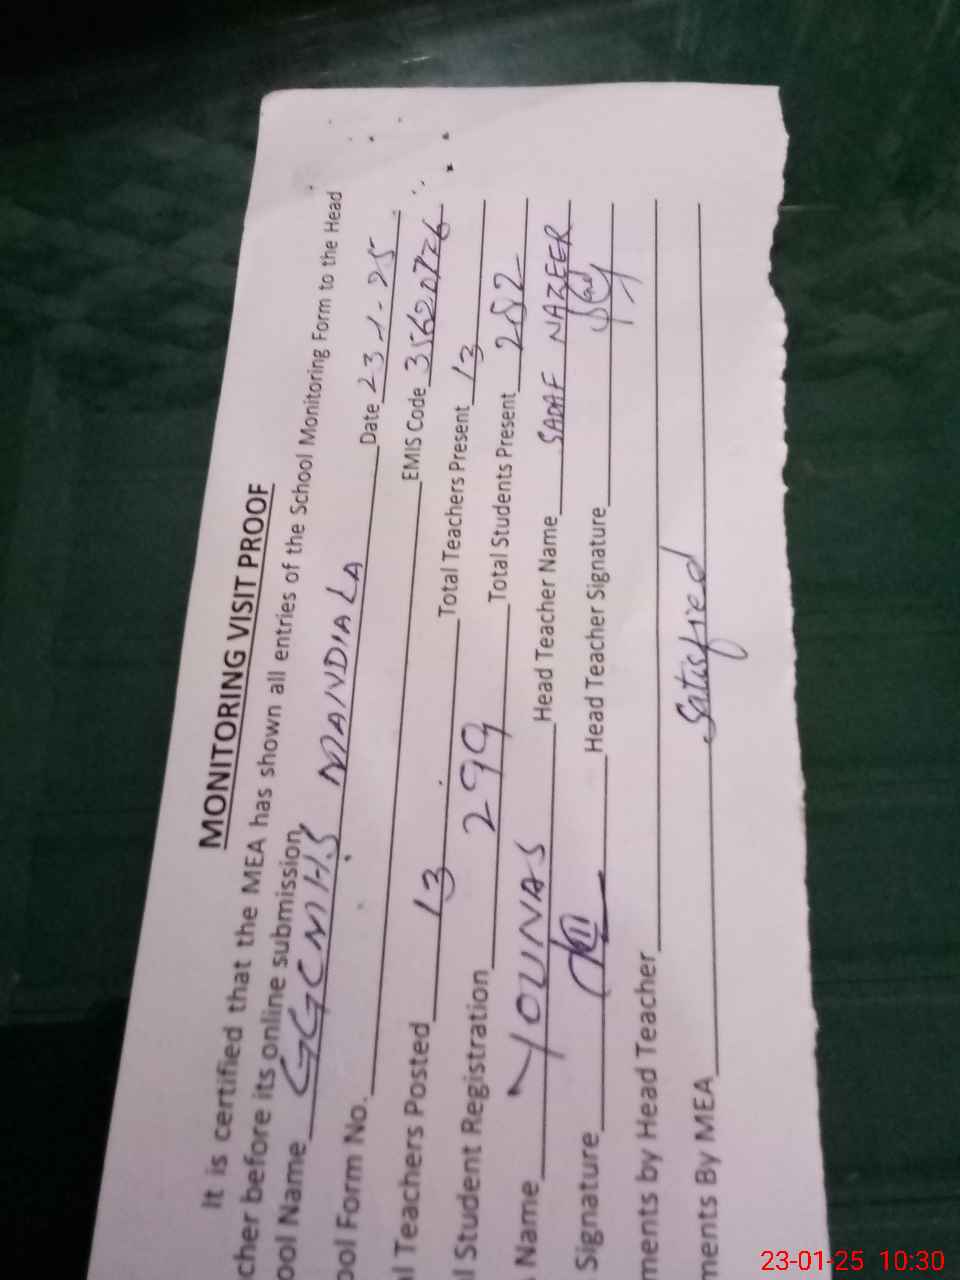 MONITORING VISIT PROOF
It is certified that the MEA has shown all entries of the School Monitoring Form to the Head
cher before its online submission
ool Name GGCMHS MANDIALA Date 23-1-25
ool Form No. EMIS Code 35620776
l Teachers Posted 13 Total Teachers Present 13
l Student Registration 299 Total Students Present 282
Name YOUNAS Head Teacher Name SADAF NAZEER
Signature Head Teacher Signature
ments by Head Teacher
ments By MEA Satisfied
23-01-25 10:30